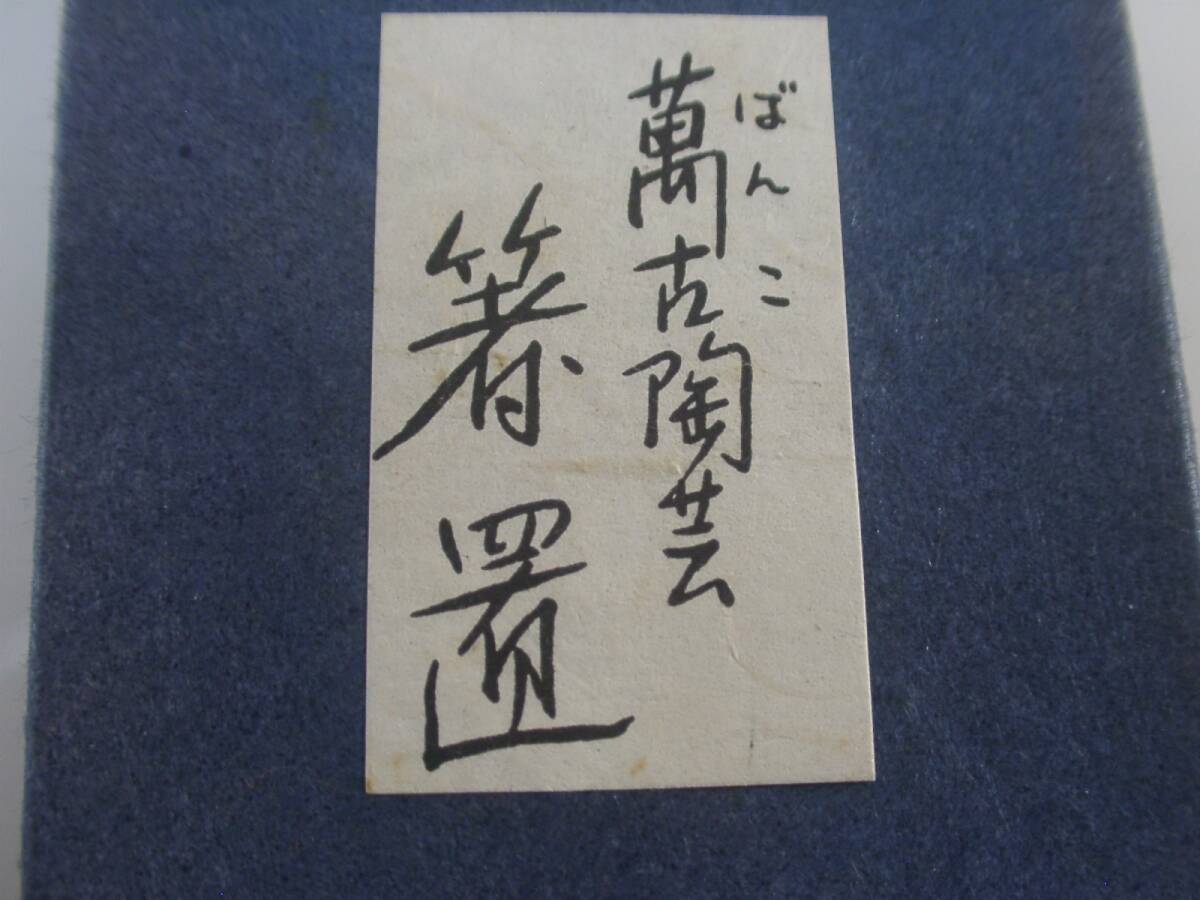 ばんこ
萬古陶芸
箸置